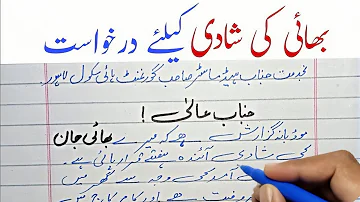 بھائی کی شادی کیلئے درخواست
بخدمت جناب ہیڈ ماسٹر صاحب گورنمنٹ ہائی سکول لاہور۔
جناب عالی!
مودبانہ گزارش ہے کہ میرے بھائی جان
کی شادی آئندہ ہفتے قرار پائی ہے۔
آمد کی وجہ سے گھر میں